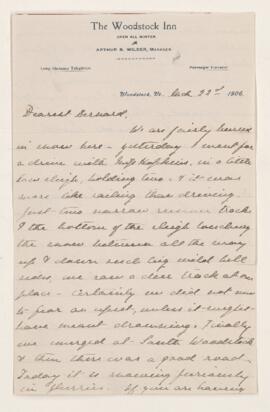 The Woodstock Inn
OPEN ALL WINTER
ARTHUR B. WILDER, MANAGER
Long Distance Telephone
Passenger Elevator
Woodstock, Vt., Mch 22d 1906
Dearest Bernard,
We are fairly buried
in snow here - yesterday I went for
a drive with Miss Hopkins, in a little
low sleigh, holding two - & it was
more like sailing than driving.
Just two narrow runner tracks
& the bottom of the sleigh touching
the snow between all the way
up & down such big wild hill
sides, we saw a deer track at one
place - Certainly we did not
to fear an upset, unless it might
have meant drowning. Finally
we emerged at South Woodstock
& then there was a good road.
Today it is snowing furiously
in flurries. If you are having